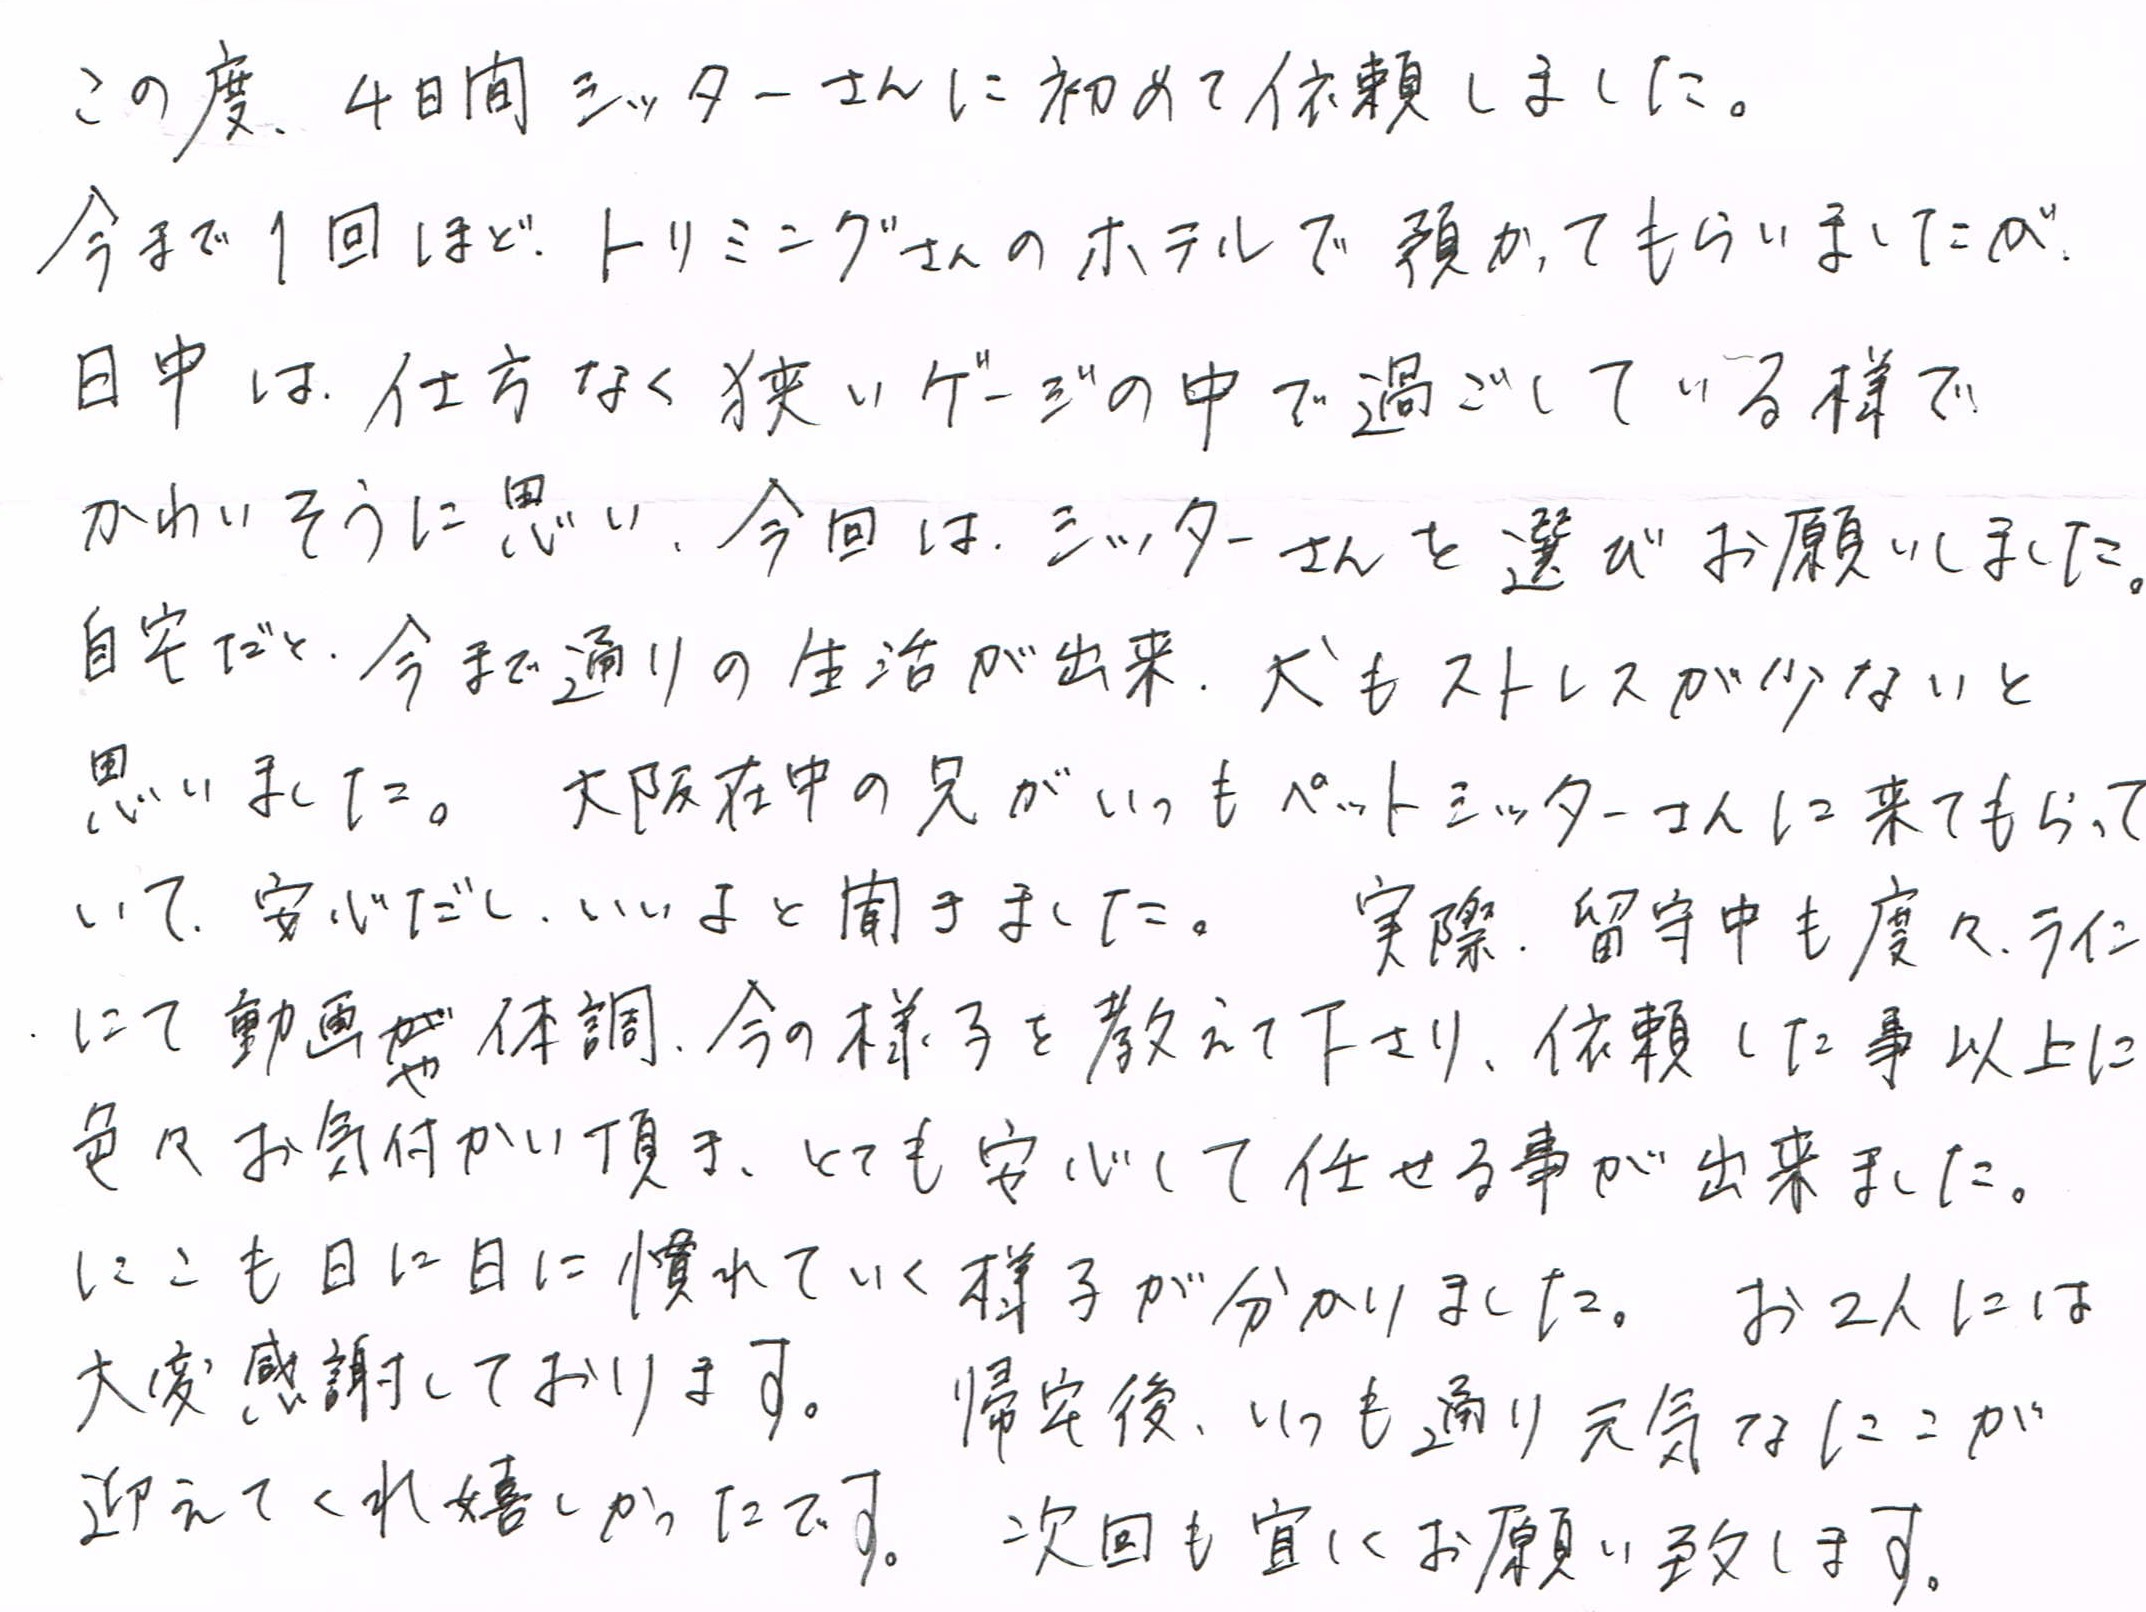 この度、4日間シッターさんに初めて依頼しました。
今まで1回ほど、トリミングさんのホテルで預かってもらいましたが、
日中は、仕方なく狭いゲージの中で過ごしている様で
かわいそうに思い、今回は、シッターさんを選びお願いしました。
自宅だと、今まで通りの生活が出来、犬もストレスが少ないと
思いました。 大阪在中の兄がいつもペットシッターさんに来てもらって
いて、安心だし、いいよと聞きました。 実際、留守中も度々、ライン
にて動画や体調、今の様子を教えて下さり、依頼した事以上に
色々お気付かい頂き、とても安心して任せる事が出来ました。
にこも日に日に慣れていく様子が分かりました。 お2人には
大変感謝しております。 帰宅後、いつも通り元気なにこが
迎えてくれ嬉しかったです。 次回も宜しくお願い致します。